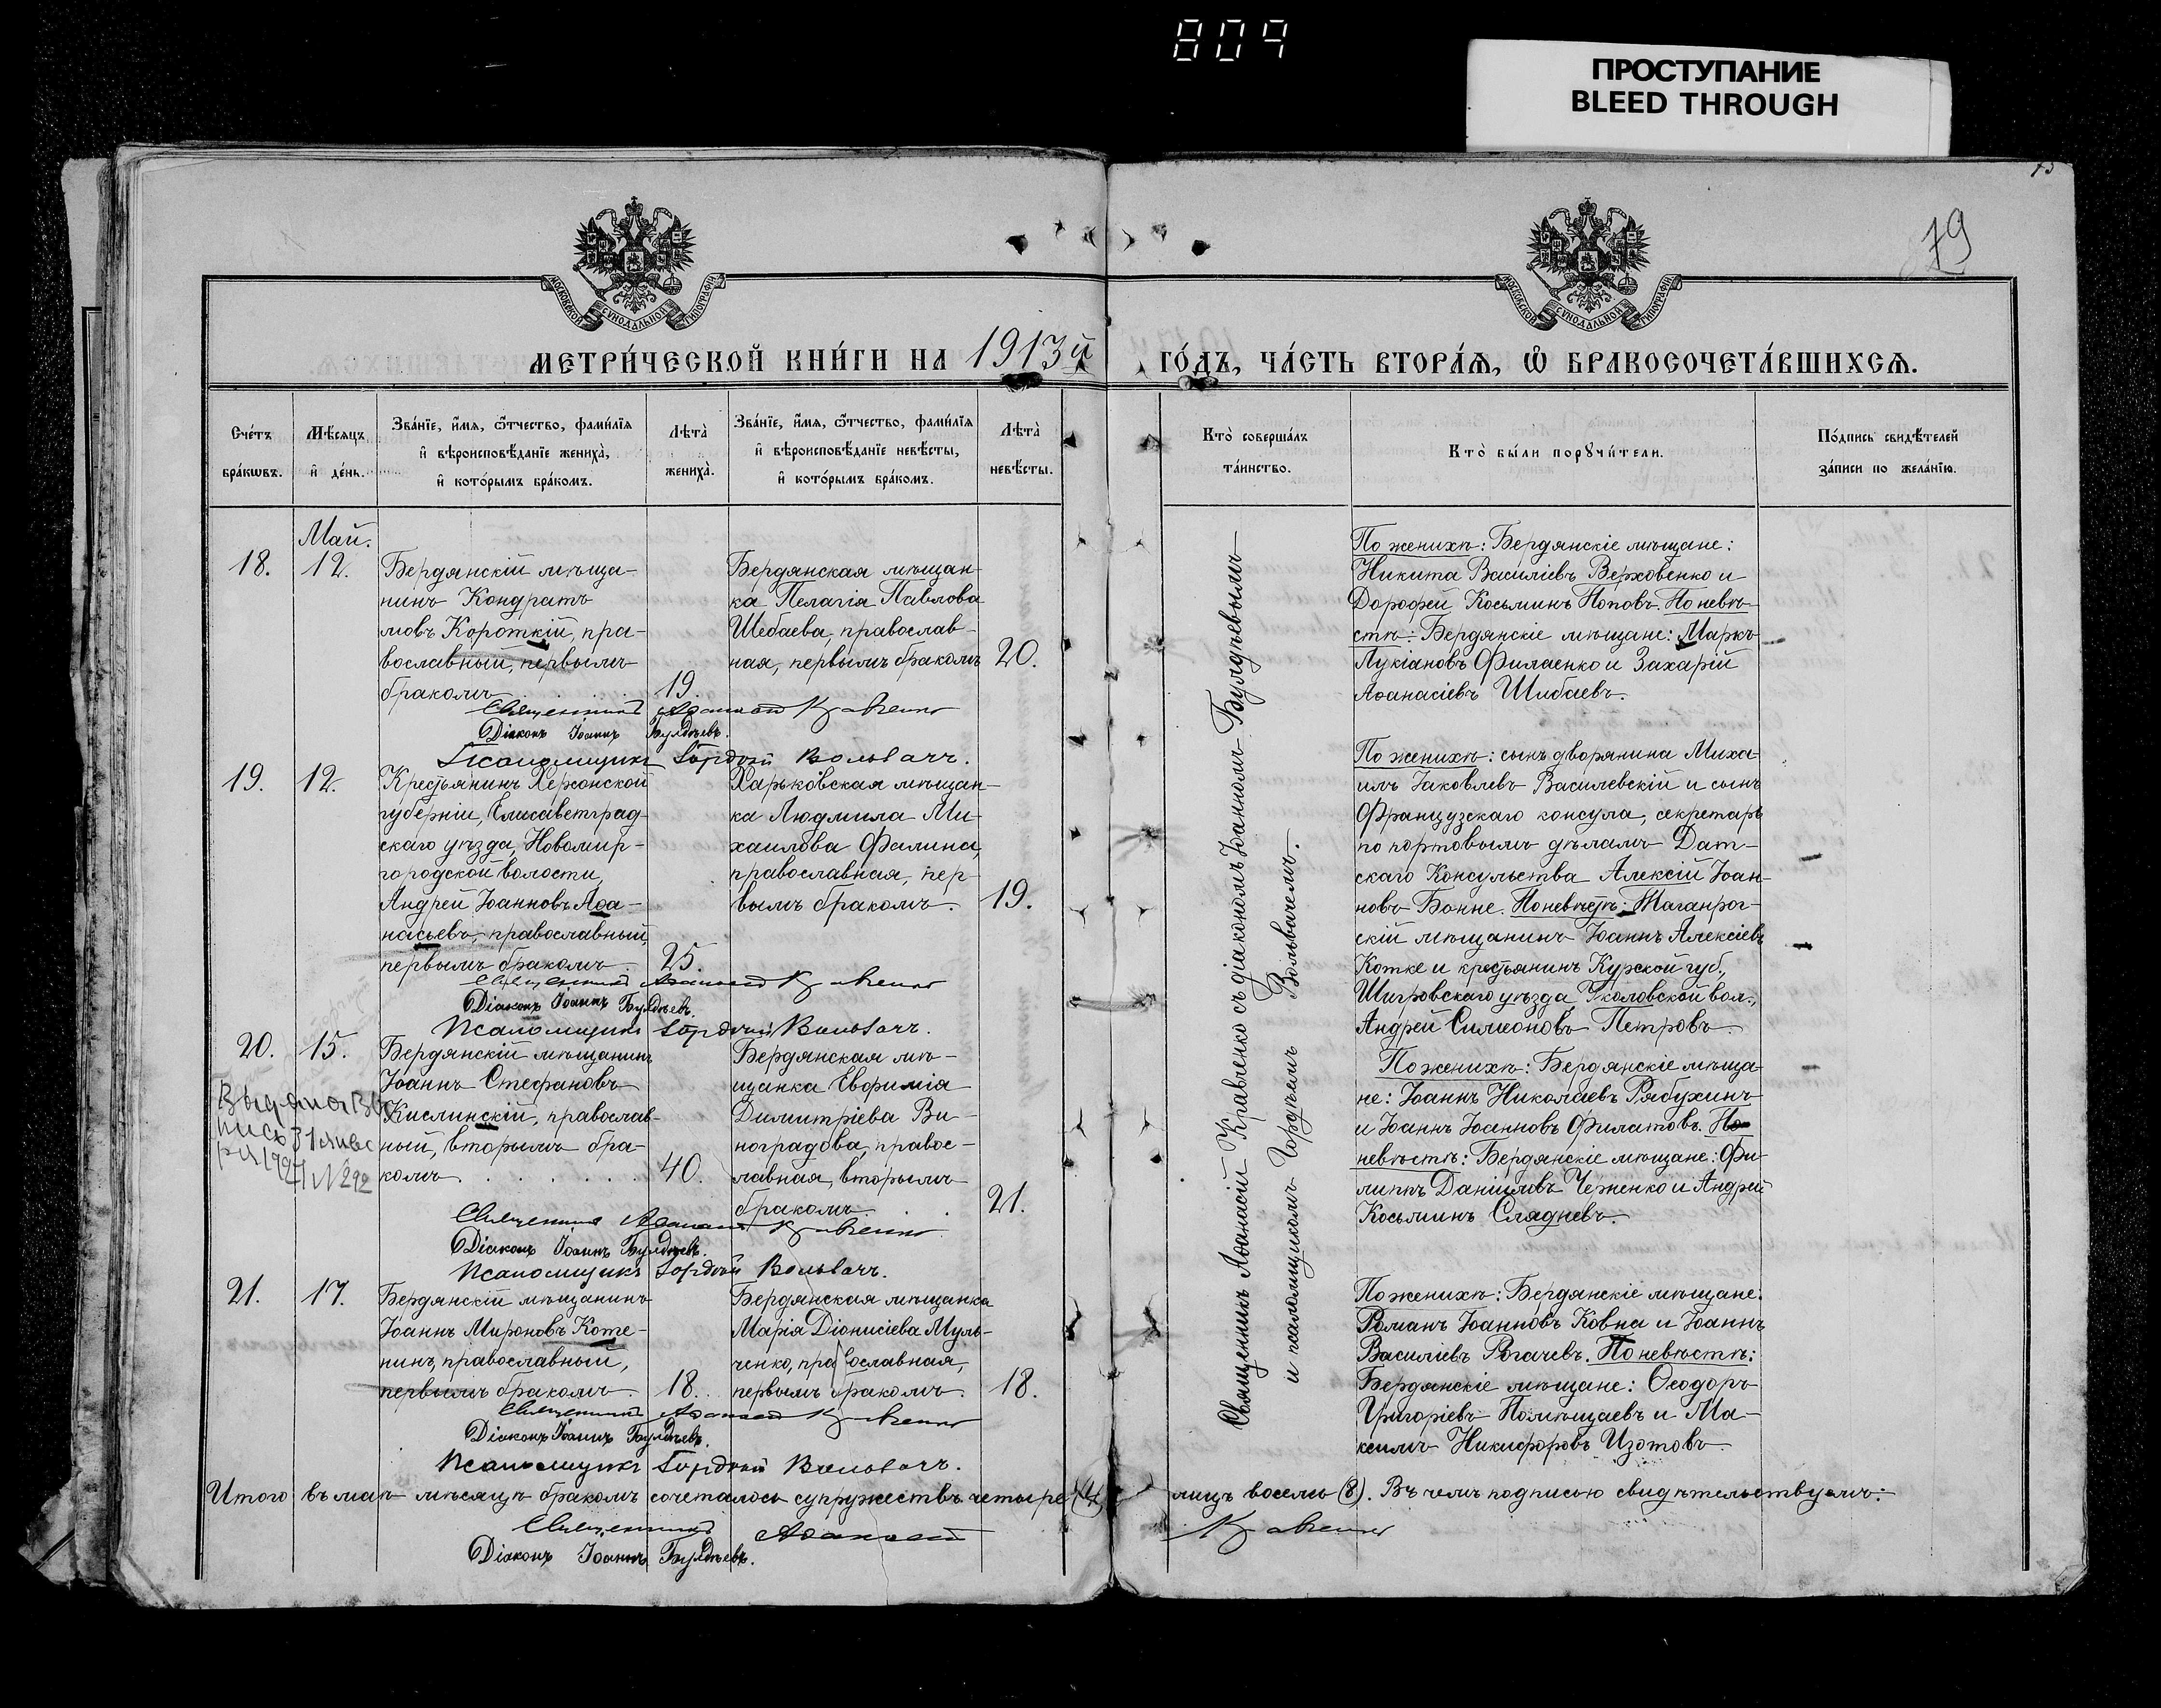 809
ПРОСТУПАНИЕ
BLEED THROUGH
79
МОСКОВСКОЙ СѴНОДАЛЬНОЙ ТИПОГРАФІИ
МОСКОВСКОЙ СѴНОДАЛЬНОЙ ТИПОГРАФІИ
МЕТРИ́ЧЕСКОЙ КНИ́ГИ НА 1913й ГО́ДЪ, ЧА́СТЬ ВТОРА́Ѧ, Ѽ БРАКОСОЧЕТА́ВШИХСѦ.
Сче́тъ бра́кѡвъ.
Мѣ́сяцъ и҆ де́нь.
Зва́нїе, и҆́мѧ, ѻ҆́тчество, фамилїѧ
и҆ вѣроисповѣ́данїе жениха̀,
и҆ кото́рымъ бра́комъ.
Лѣта̀ жениха̀.
Зва́нїе, и҆́мѧ, ѻ҆́тчество, фамилїѧ
и҆ вѣроисповѣ́данїе невѣ́сты,
и҆ кото́рымъ бра́комъ.
Лѣта̀ невѣ́сты.
Кто̀ соверша́лъ та́инство.
Кто̀ бы́ли порꙋчи́тели.
По́дпись свидѣ́телей
за́писи по жела́нїю.
Май.
18.
12.
Бердянскій мѣща-
нинъ Кондратъ
мовъ Короткій, пра-
вославный, первымъ
бракомъ
19.
Бердянская мѣщан-
ка Пелагія Павлова
Шебаева, православ-
ная, первымъ бракомъ
20.
Священникъ Аѳанасій Кравченко
Діаконъ Іоаннъ Булдѣевъ.
Псаломщикъ Гордій Вольвачъ.
По женихѣ: Бердянскіе мѣщане:
Никита Василіевъ Верховенко и
Дорофей Косьминъ Поповъ. По невѣ-
стѣ: Бердянскіе мѣщане: Маркъ
Лукіановъ Филаенко и Захарій
Аѳанасіевъ Шибаевъ.
19.
12.
Крестьянинъ Херсонской
губерніи, Елисаветград-
скаго уѣзда, Новомир-
городской волости,
Андрей Іоанновъ Аѳа-
насьевъ, православный,
первымъ бракомъ
25.
Харьковская мѣщан-
ка Людмила Ми-
хаилова Фалина,
православная, пер-
вымъ бракомъ.
19.
Священникъ Аѳанасій Кравченко
Діаконъ Іоаннъ Булдѣевъ.
Псаломщикъ Гордій Вольвачъ.
По женихѣ: сынъ дворянина Миха-
илъ Іаковлевъ Василевскій и сынъ
Французскаго консула, секретарь
по портовымъ дѣламъ Дат-
скаго Консульства Алексій Іоан-
новъ Бонне. По невѣстѣ: Таганрог-
скій мѣщанинъ Іоаннъ Алексіевъ
Котке и крестьянинъ Курской губ.,
Щигровскаго уѣзда, Уколовской вол.,
Андрей Симеоновъ Петровъ.
20.
15.
Бердянскій мѣщанинъ
Іоаннъ Стефановъ
Кислинскій, православ-
ный, вторымъ бра-
комъ.
40.
Бердянская мѣ-
щанка Евфимія
Димитріева Ви-
ноградова, правос-
лавная, вторымъ
бракомъ
21.
Священникъ Аѳанасій Кравченко
Діаконъ Іоаннъ Булдѣевъ.
Псаломщикъ Гордій Вольвачъ.
По женихѣ: Бердянскіе мѣща-
не: Іоаннъ Николаевъ Рябухинъ
и Іоаннъ Іоанновъ Филатовъ. По
невѣстѣ: Бердянскіе мѣщане: Фи-
липпъ Даніиловъ Черненко и Андрей
Косьминъ Сляднєвъ.
21.
17.
Бердянскій мѣщанинъ
Іоаннъ Мироновъ Коте-
нинъ, православный,
первымъ бракомъ.
18.
Бердянская мѣщанка
Марія Діонисіева Муль-
ченко, православная,
первымъ бракомъ.
18.
Священникъ Аѳанасій Кравченко
Діаконъ Іоаннъ Булдѣевъ.
Псаломщикъ Гордій Вольвачъ.
По женихѣ: Бердянскіе мѣщане:
Романъ Іоанновъ Ковна и Іоаннъ
Василіевъ Рогачевъ. По невѣстѣ:
Бердянскіе мѣщане: Ѳеодоръ
Григоріевъ Помѣщаевъ и Ма-
ксимъ Никифоровъ Изотовъ.
Священникъ Аѳанасій Кравченко съ діакономъ Іоанномъ Булдѣевымъ
и псаломщикомъ Гордіемъ Вольвачемъ.
Итого въ маѣ мѣсяцѣ бракомъ сочеталось супружествъ четыре (4) лицъ восемь (8). Въ чемъ подписью свидѣтельствуемъ:
Священникъ Аѳанасій Кравченко
Діаконъ Іоаннъ Булдѣевъ.